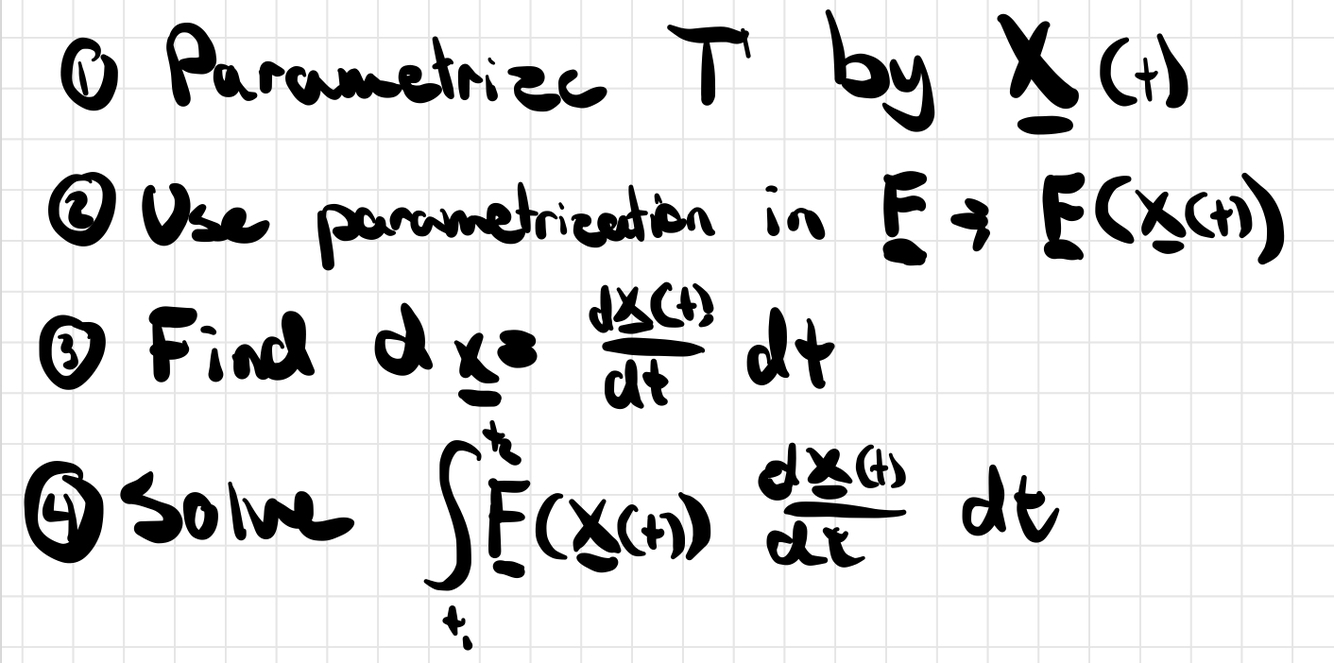 ① Parametrize T by X(t)
② Use parametrization in F → F(X(t))
③ Find dx = dX(t)/dt dt
④ Solve ∫ t₁ t₂ F(X(t)) dX(t)/dt dt